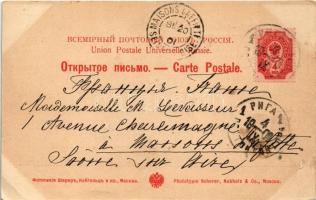 ВСЕМІРНЫЙ ПОЧТОВЫЙ СОЮЗЪ. РОССІЯ.
Union Postale Universelle. Russie.
Открытое письмо. — Carte Postale.
Mademoiselle M. Levasseur
1 Avenue Charlemagne
à Maisons
Seine sur Oise
РИГА
Фототипія Шереръ, Набгольцъ и Ко., Москва.
Phototypie Scherer, Nabholz & Co., Moscou.